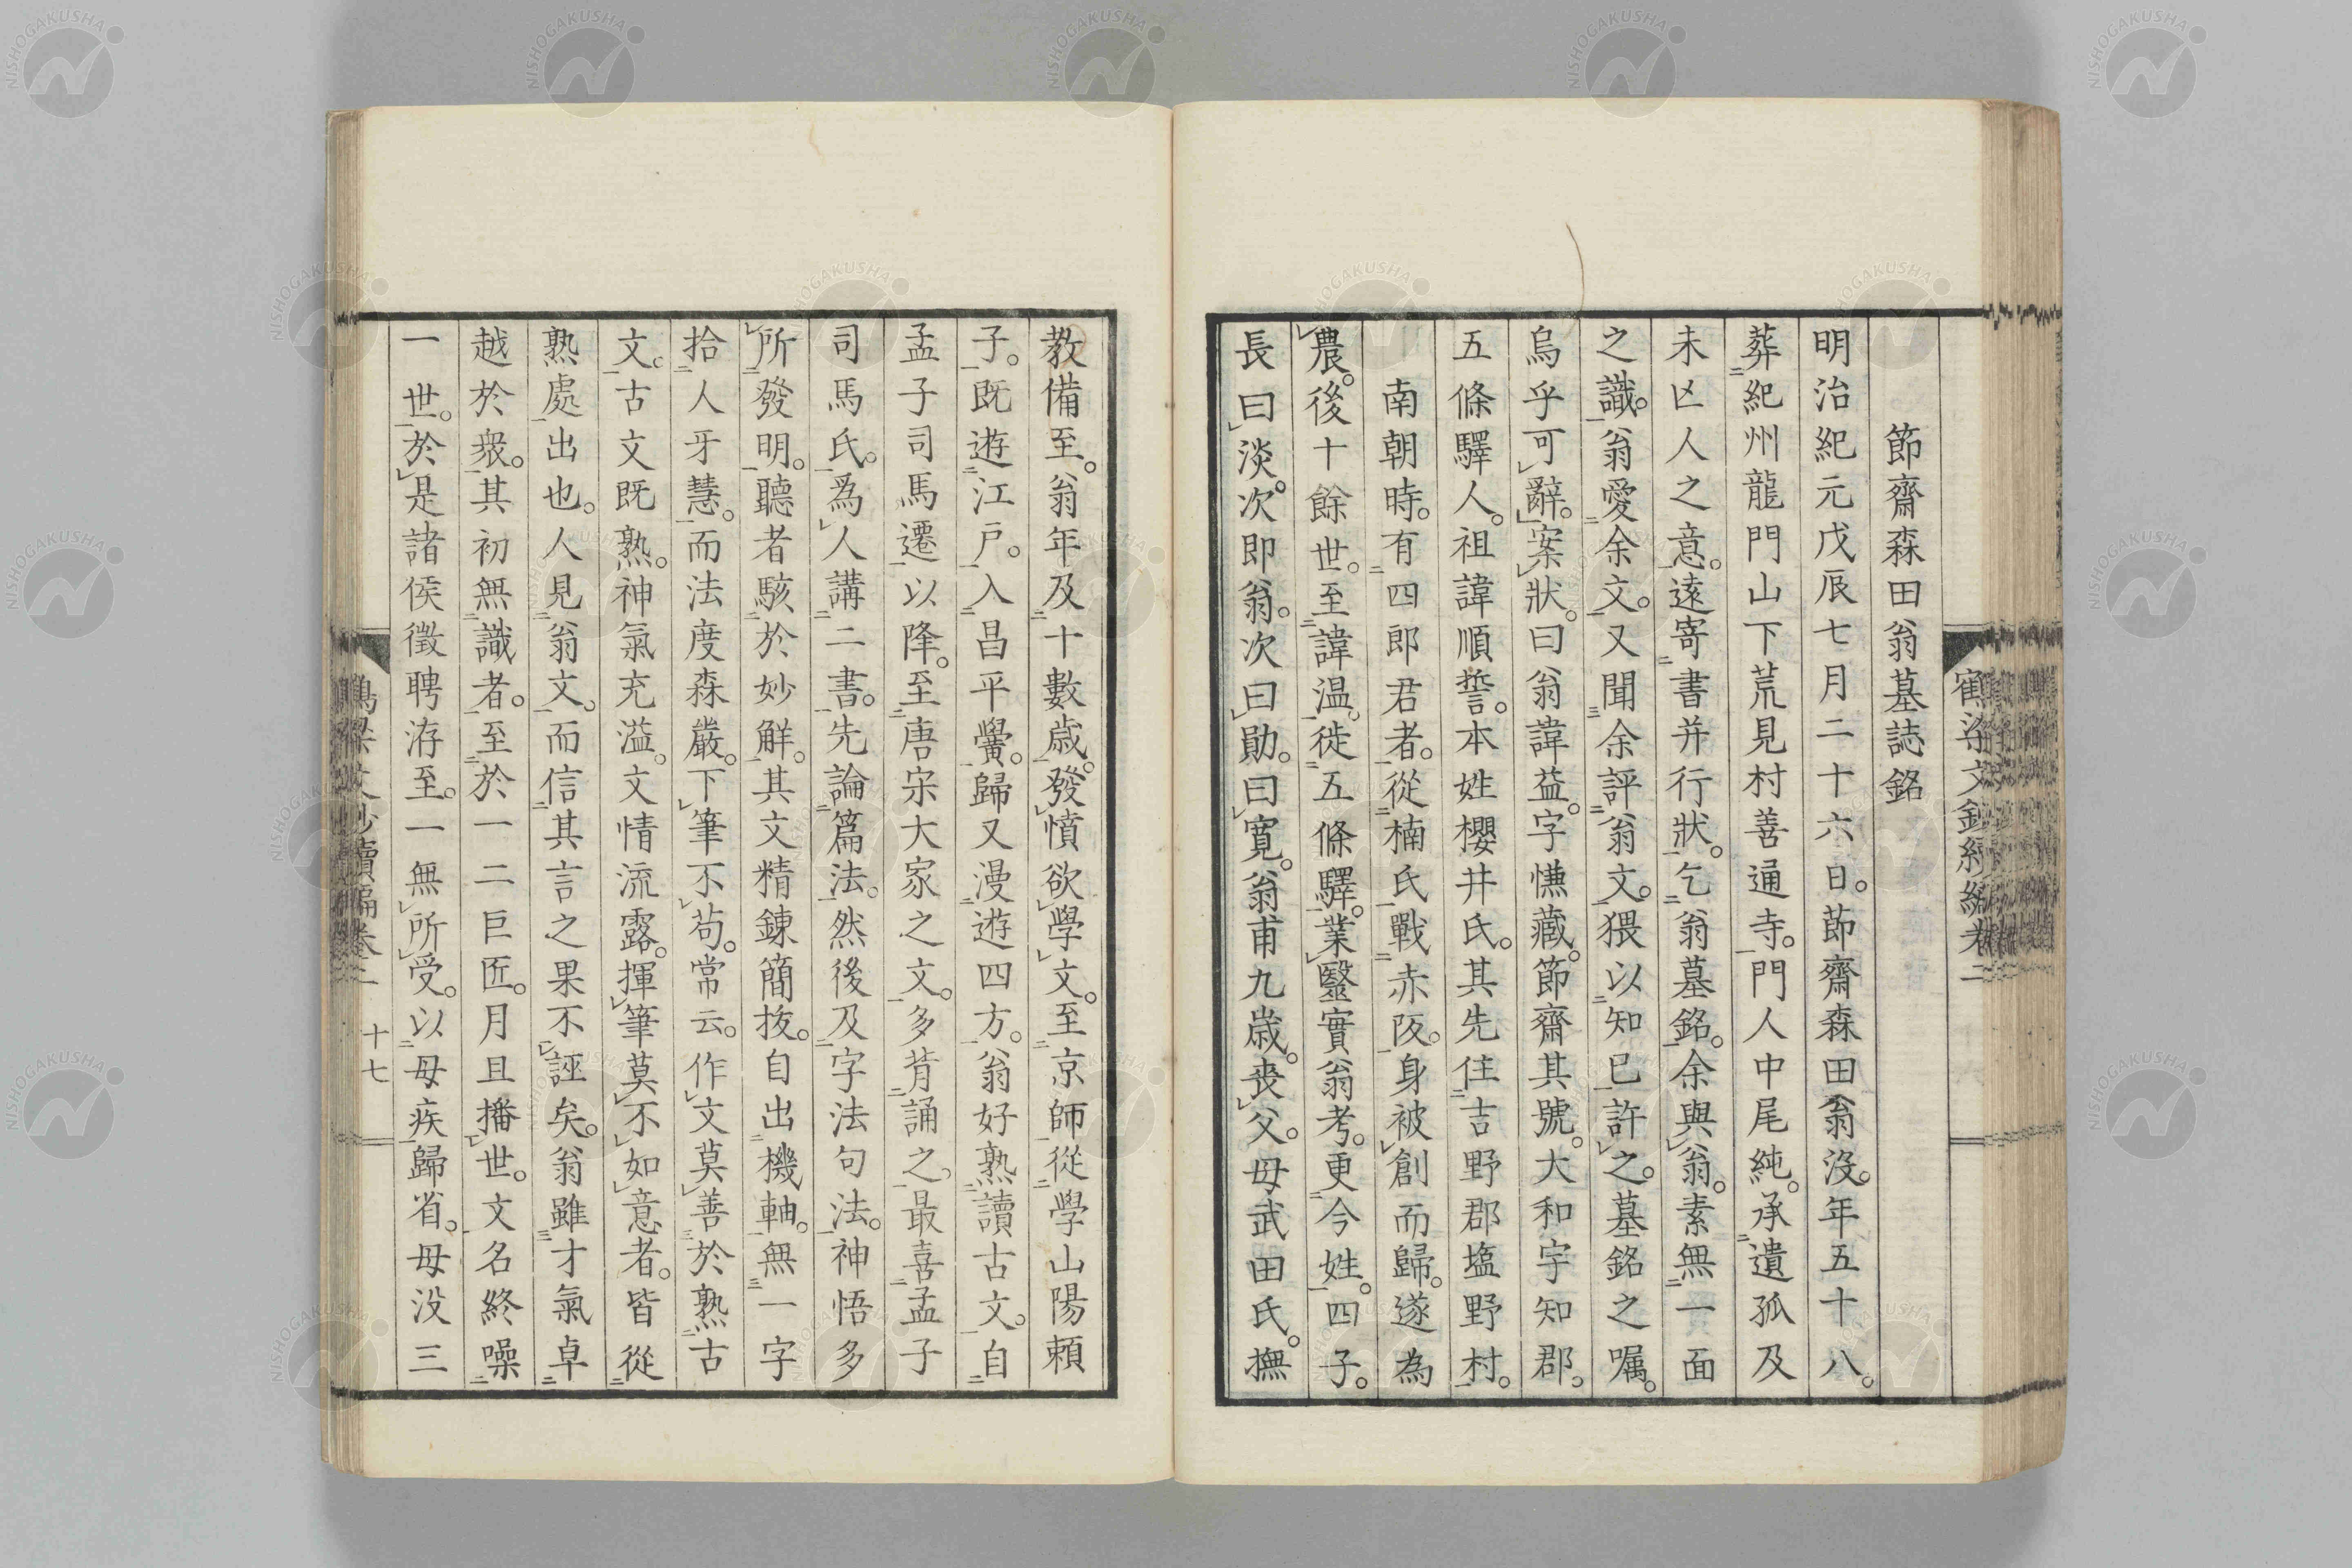 節齋森田翁墓誌銘
明治紀元戊辰七月二十六日。節齋森田翁沒。年五十八。
葬紀州龍門山下荒見村善通寺。門人中尾純。承遺孤及
未亾人之意。遠寄書并行狀。乞翁墓銘。余與翁。素無一面
之識。翁愛余文。又聞余評翁文。猥以知己許之。墓銘之嘱。
烏乎可辭。案狀。曰翁諱益。字㷰藏。節齋其號。大和宇知郡。
五條驛人。祖諱順誓。本姓櫻井氏。其先住吉野郡塩野村。
南朝時。有四郎君者。從楠氏戰赤阪。身被創而歸。遂為
農。後十餘世。至諱温。徙五條驛。業毉實翁考。更今姓。四子。
長曰淡。次即翁。次曰勛。曰寛。翁甫九歳。喪父。母武田氏。撫
教備至。翁年及十數歳。發憤欲學文。至京師從學山陽頼
子。既遊江戸。入昌平黌。歸又漫遊四方。翁好熟讀古文。自
孟子司馬遷以降。至唐宋大家之文。多背誦之。最喜孟子
司馬氏。爲人講二書。先論篇法。然後及字法句法。神悟多
所發明。聽者駭於妙解。其文精鍊簡抜。自出機軸。無一字
拾人牙慧。而法度森嚴。下筆不苟。常云。作文莫善於熟古
文。古文既熟。神氣充溢。文情流露。揮筆莫不如意者。皆從
熟處出也。人見翁文。而信其言之果不誣矣。翁雖才氣卓
越於衆。其初無識者。至於一二巨匠。月且播世。文名終噪
一世。於是諸侯徴聘洊至。一無所受。以母疾歸省。母没三
十七